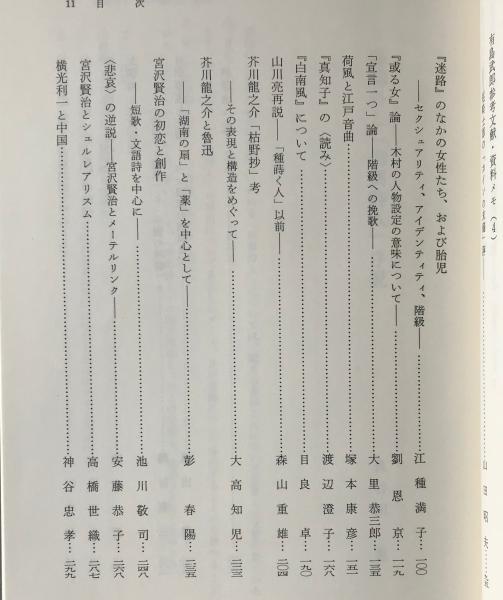 有島武郎参考文献・資料メモ(4)
山田昭夫
『迷路』のなかの女性たち、および胎児
――セクシュアリティ、アイデンティティ、階級――……江種満子…一〇〇
『或る女』論――木村の人物設定の意味について――……劉恩京…一一九
「宣言一つ」論――階級への挽歌――……大里恭三郎…一三五
荷風と江戸音曲……塚本康彦…一五一
『真知子』の〈読み〉……渡辺澄子…一六八
『白南風』について……目良卓…一九〇
山川亮再説――「種蒔く人」以前――……森山重雄…二〇四
芥川龍之介「枯野抄」考
――その表現と構造をめぐって――……大高知児…二二三
芥川龍之介と魯迅
――「湖南の扇」と「薬」を中心として――……彭春陽…二三五
宮沢賢治の初恋と創作
――短歌・文語詩を中心に――……池川敬司…二四八
〈悲哀〉の逆説――宮沢賢治とメーテルリンク――……安藤恭子…二六八
宮沢賢治とシュルレアリスム……高橋世織…二八七
横光利一と中国……神谷忠孝…二九九
11 目次